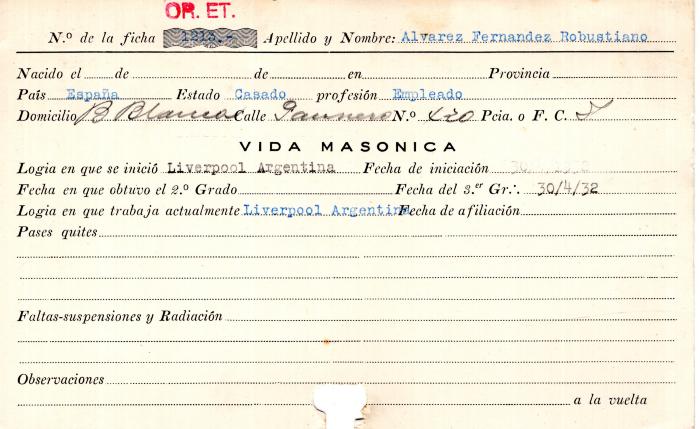 OR. ET.
N.º de la ficha 1213.- Apellido y Nombre: Alvarez Fernandez Robustiano
Nacido el de de en Provincia
País España Estado Casado profesión Empleado
Domicilio B Blanca Calle N.º 420 Pcia. o F. C. S
VIDA MASONICA
Logia en que se inició Liverpool Argentina Fecha de iniciación
Fecha en que obtuvo el 2.º Grado Fecha del 3.er Gr∴ 30/4/32
Logia en que trabaja actualmente Liverpool Argentina Fecha de afiliación
Pases quites
Faltas-suspensiones y Radiación
Observaciones
a la vuelta